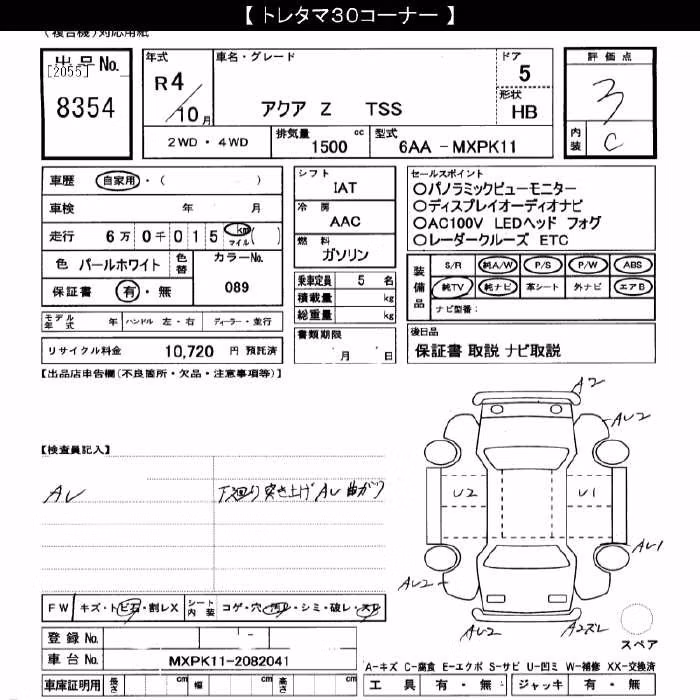 【 トレタマ30コーナー 】
(複合機)対応用紙
出品No.
[2055]
8354
年式
R4
/10月
車名・グレード
アクア Z TSS
ドア
5
形状
HB
評価点
3
内装
C
2WD・4WD
排気量 cc
1500
型式
6AA-MXPK11
車歴 自家用・( )
車検 年 月
走行 6万0千015 km マイル ( )
色 パールホワイト
色替
カラーNo.
089
保証書 有・無
モデル年式 年 ハンドル 左・右 ディーラー・並行
リサイクル料金 10,720 円 預託済
シフト
IAT
冷房
AAC
燃料
ガソリン
乗車定員 5 名
積載量 kg
総重量 kg
書類期限
月 日
セールスポイント
○パノラミックビューモニター
○ディスプレイオーディオナビ
○AC100V LEDヘッド フォグ
○レーダークルーズ ETC
装備品
S/R 純A/W P/S P/W ABS
純TV 純ナビ 革シート 外ナビ エアB
ナビ型番:
後日品
保証書 取説 ナビ取説
【出品店申告欄(不良箇所・欠品・注意事項等)】
【検査員記入】
AU
下廻り突き上げ AU 曲がり
A2
AU2
U2
U1
AU1
AU2
AU2
A2ズレ
スペア
FW キズ・トビ石・割レX
シート内装 コゲ・穴・汚レ・シミ・破レ・スレ
登録No.
車台No. MXPK11-2082041
車庫証明用 長さ cm 幅 cm 高さ cm
A-キズ C-腐食 E-エクボ S-サビ U-凹ミ W-補修 XX-交換済
工具 有・無 ジャッキ 有・無